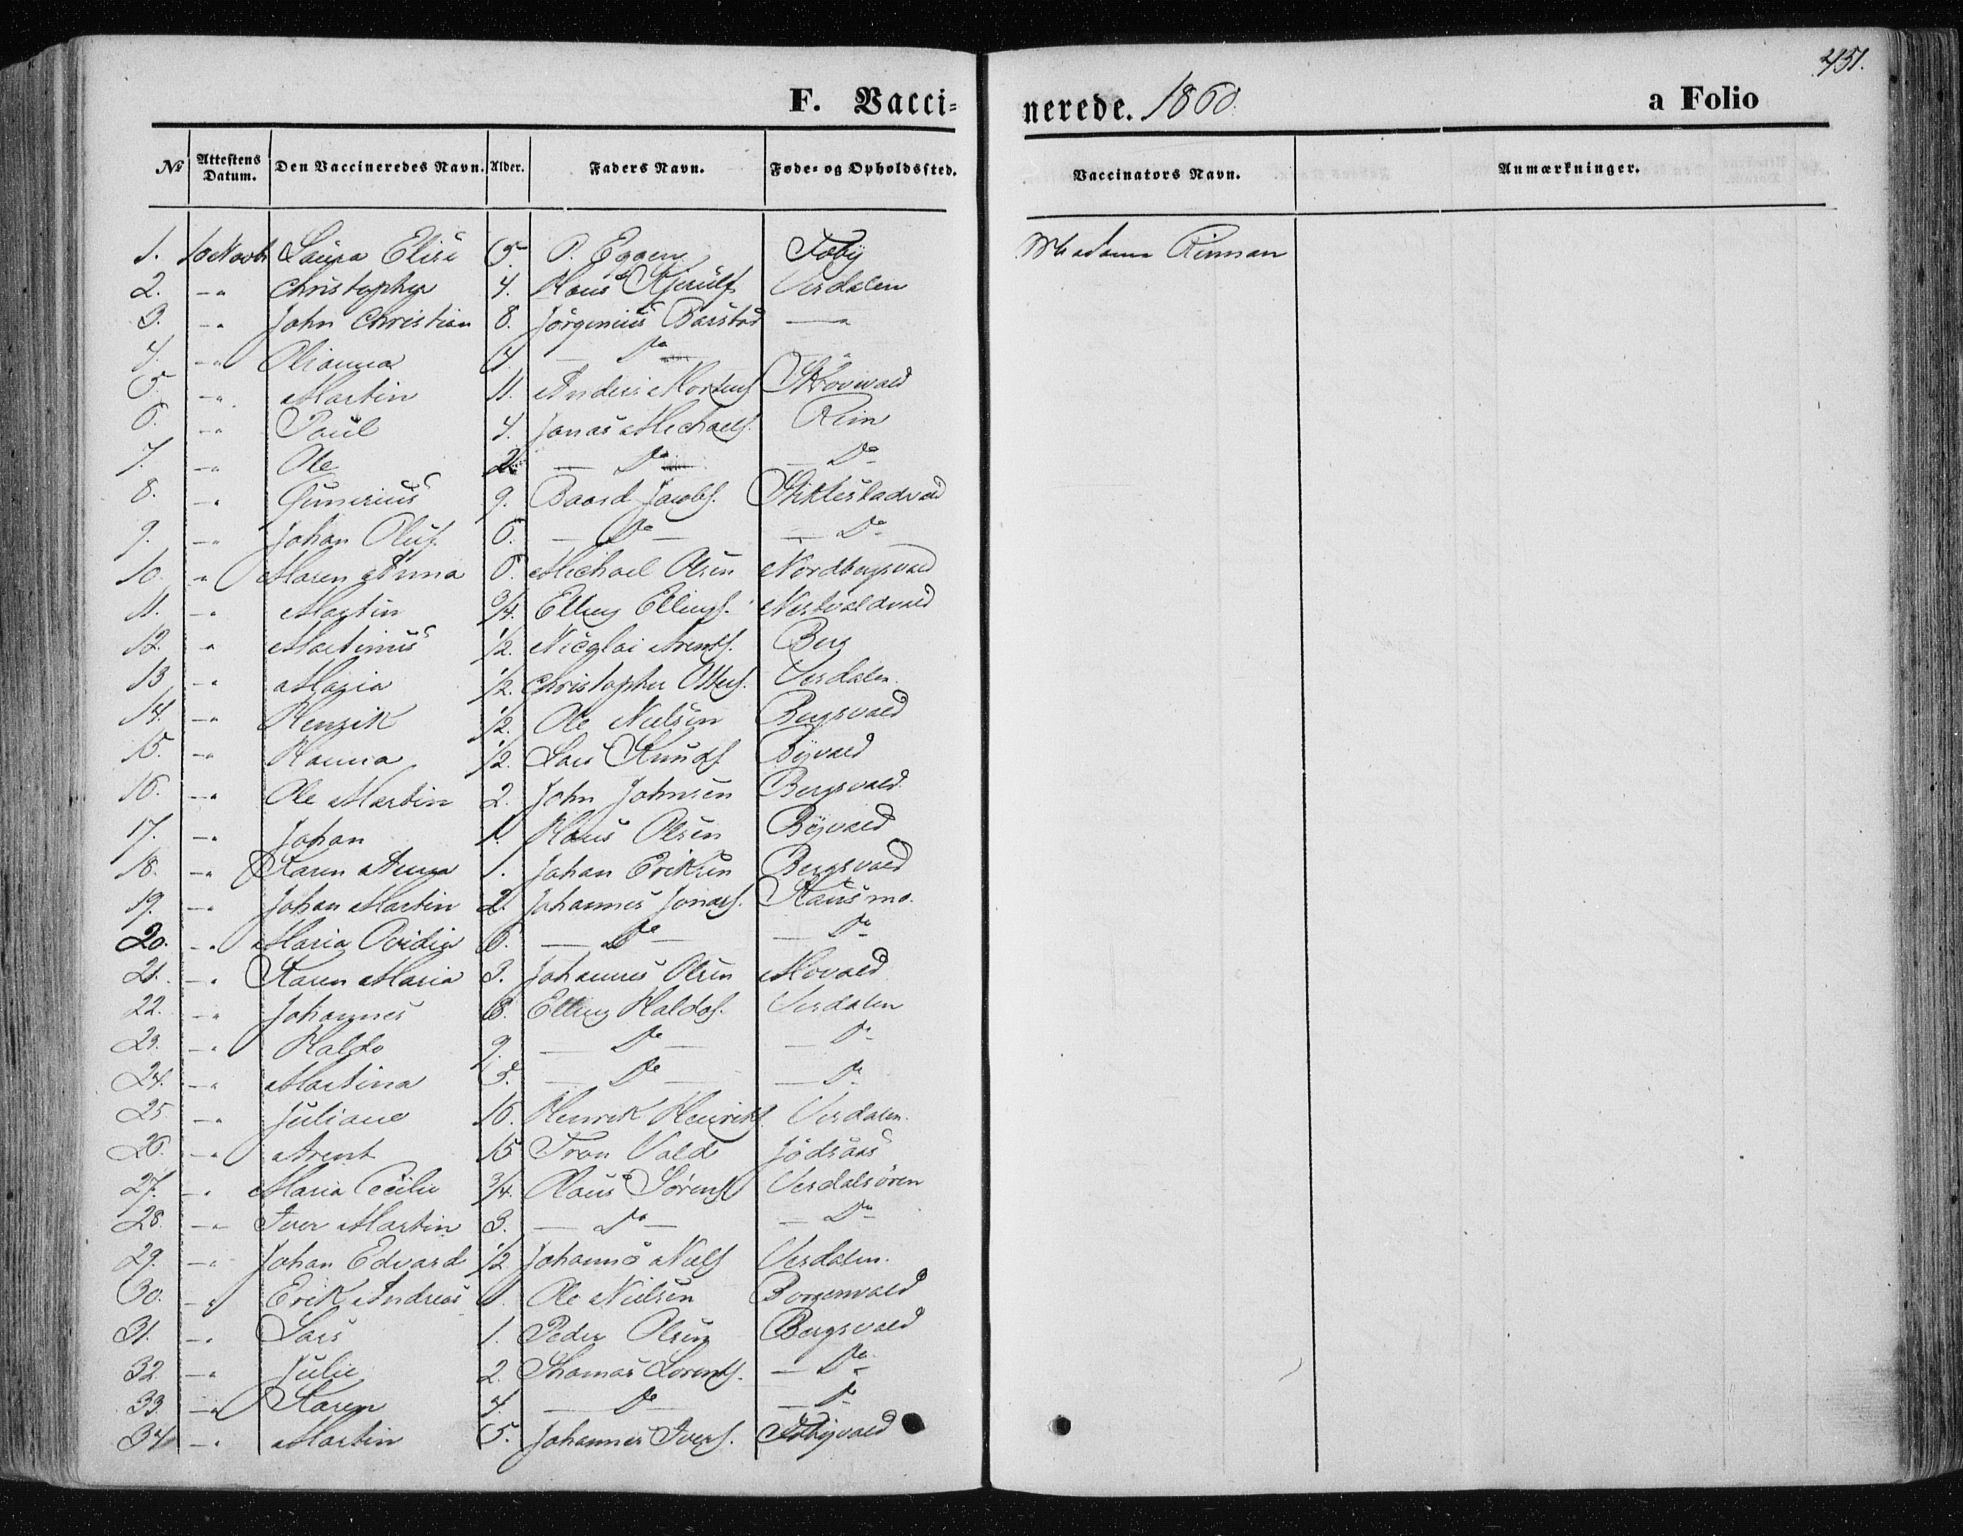 451.
F. Vacci=
nerede. 1860.
a Folio
No Attestens Datum. Den Vaccineredes Navn. Alder. Faders Navn. Føde- og Opholdssted. Vaccinators Navn. Anmærkninger.
1. 10 Novb. Laura Elise 5. P. Eggen Foby Madame Rinnan
2. -"- Christopher 4. Hans Kjerulf Verdalen
3. -"- John Christian 8. Jørgenius Barstad —"
4. -"- Olianna — Do —
5. -"- Martin 11. Anders Mortens.
6. -"- Paul 4. Jonas Michaels. Rein
7. -"- Ole 2. — Do — — Do —
8. -"- Gunerius 9. Baard Jacobs. Stiklestadvald
9. -"- Johan Oluf 6. — Do — — Do —
10. -" Maren Anna 6. Michael Olsen Nordbergsvald
11. -"- Martin 3/4. Elling Ellings.
12. " Martinus 1/2. Nicolai Arents. Berg
13 -"- Maria 1/2. Christopher Otters. Verdalen.
14. -"- Henrik 1/2. Ole Nielsen Bergsvald
15. -"- Hanna 1/2. Lars Knuds. Byvald
16. -"- Ole Martin 2. John Johnsen Bergsvald
17. -"- Johan 1. Hans Olsen Byvald
18. -"- Karen Anna 1. Johan Eriksen Bergsvald
19. -"- Johan Martin 2. Johannes Jonas. Hausmo.
20. -"- Maria Ovidia 6. — Do — — Do —
21. -"- Karen Maria 3. Johannes Olsen Movald
22. -"- Johannes Elling Haldos. Verdalen
23. -"- Haldo 9. — Do — — Do —
24. -"- Martina — Do — — Do —
25 -"- Juliane 16. Henrik Henriks. Verdalen.
26. -"- Arent 15 Tron Vald Jødsaas
27. " Maria Cecilie 3/4. Olaus Sørens. Verdalsøren
28. -"- Iver Martin 3. — Do — — Do —
29. -"- Johan Edvard 1/2 Johannes Niels. Verdalen.
30. -"- Erik Andreas Ole Nielsen Borgenvald
31. -"- Lars 1. Peder Olsen Bergsvald
32 -"- Julie 2. Thomas Lorents. — Do —
33. -"- Karen 4. — Do — — Do —
34 -"- Martin 5. Johannes Ivers. Fobyvald